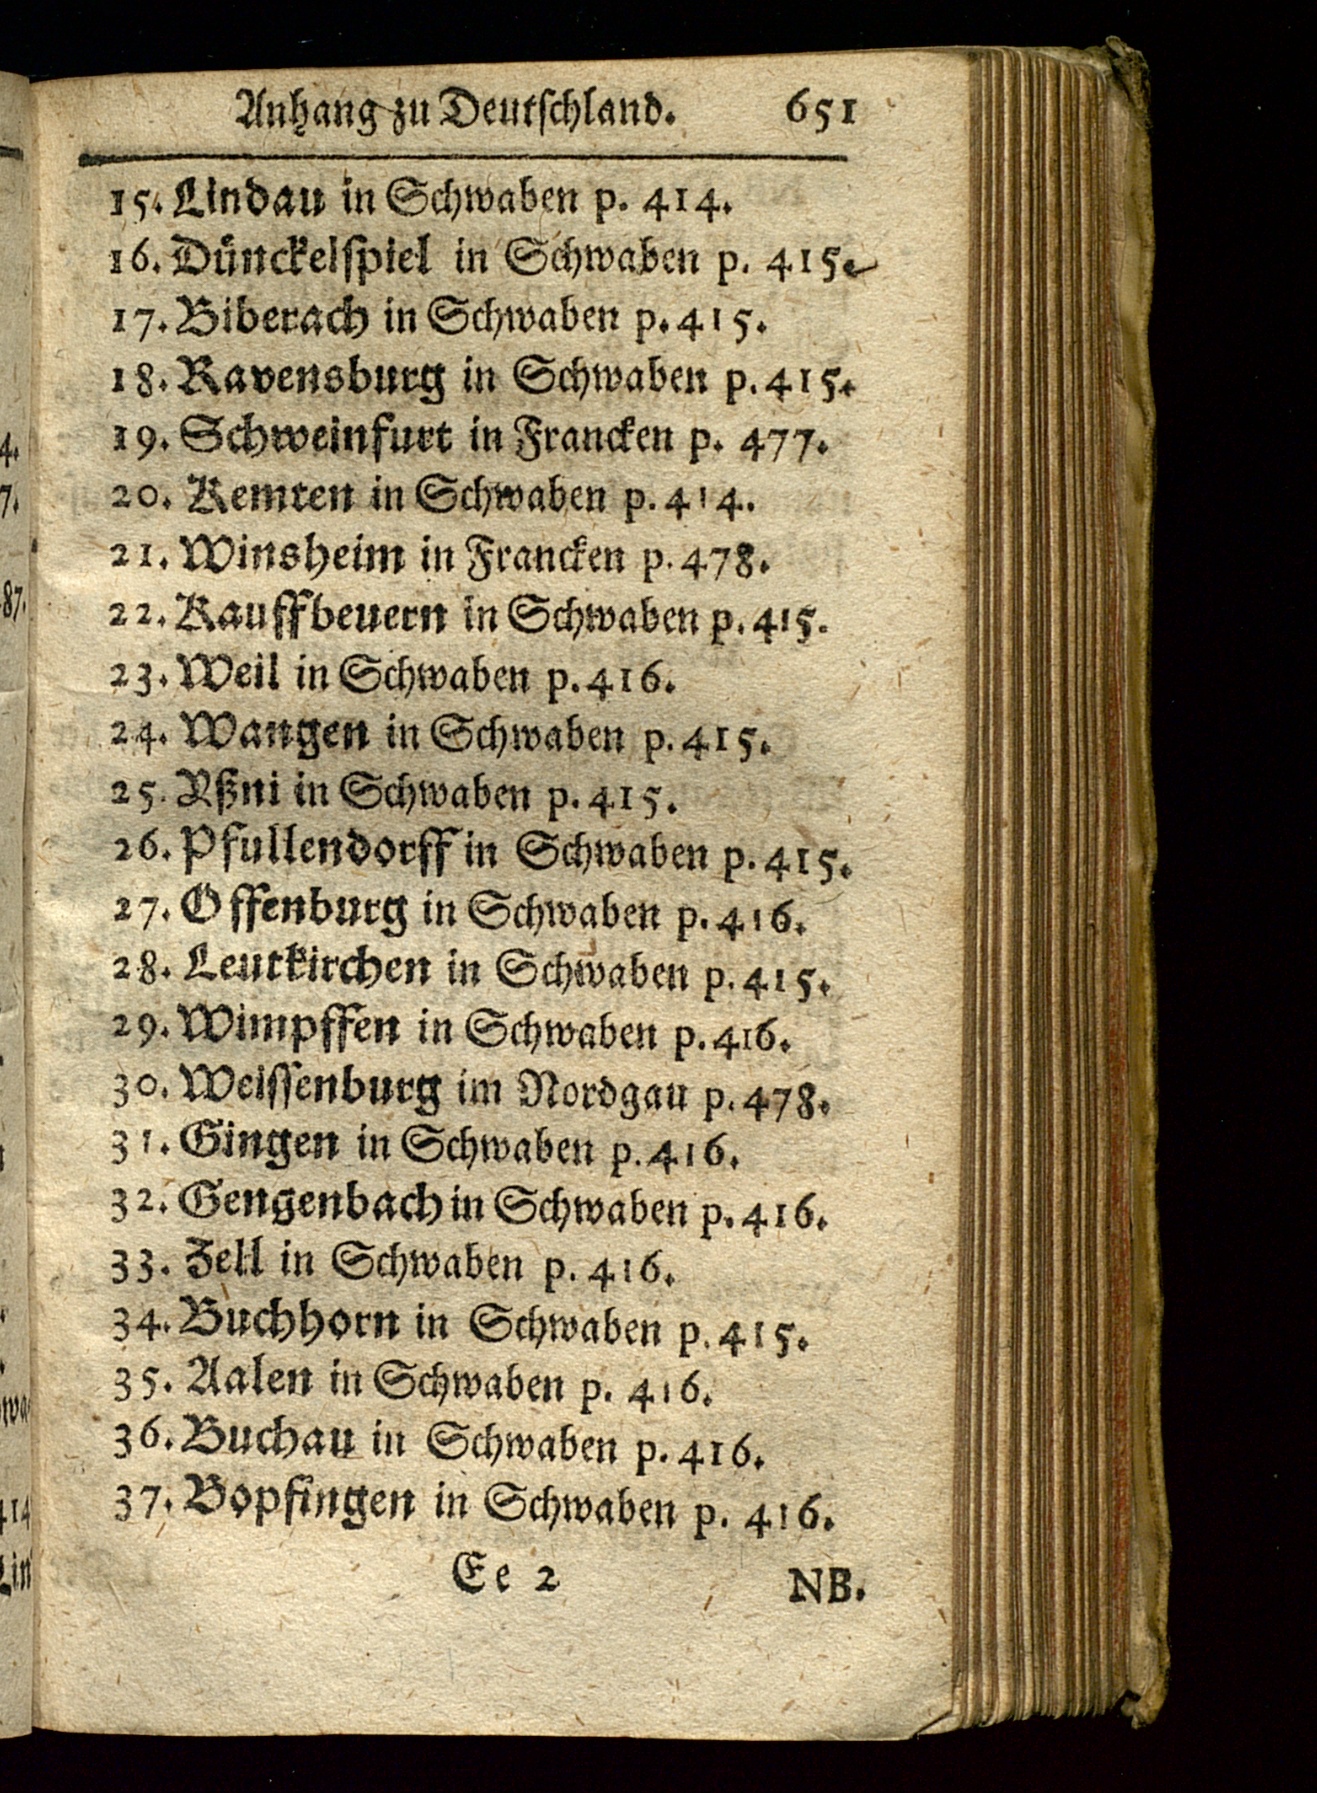 Anhang zu Deutschland. 651
15. Lindau in Schwaben p. 414.
16. Dünckelspiel in Schwaben p. 415.
17. Biberach in Schwaben p. 415.
18. Ravensburg in Schwaben p. 415.
19. Schweinfurt in Francken p. 477.
20. Kemten in Schwaben p. 414.
21. Winsheim in Francken p. 478.
22. Kauffbeuern in Schwaben p. 415.
23. Weil in Schwaben p. 416.
24. Wangen in Schwaben p. 415.
25. Yßni in Schwaben p. 415.
26. Pfullendorff in Schwaben p. 415.
27. Offenburg in Schwaben p. 416.
28. Leutkirchen in Schwaben p. 415.
29. Wimpffen in Schwaben p. 416.
30. Weissenburg im Nordgau p. 478.
31. Gingen in Schwaben p. 416.
32. Gengenbach in Schwaben p. 416.
33. Zell in Schwaben p. 416.
34. Buchhorn in Schwaben p. 415.
35. Aalen in Schwaben p. 416.
36. Buchau in Schwaben p. 416.
37. Bopfingen in Schwaben p. 416.
Ee 2 NB.